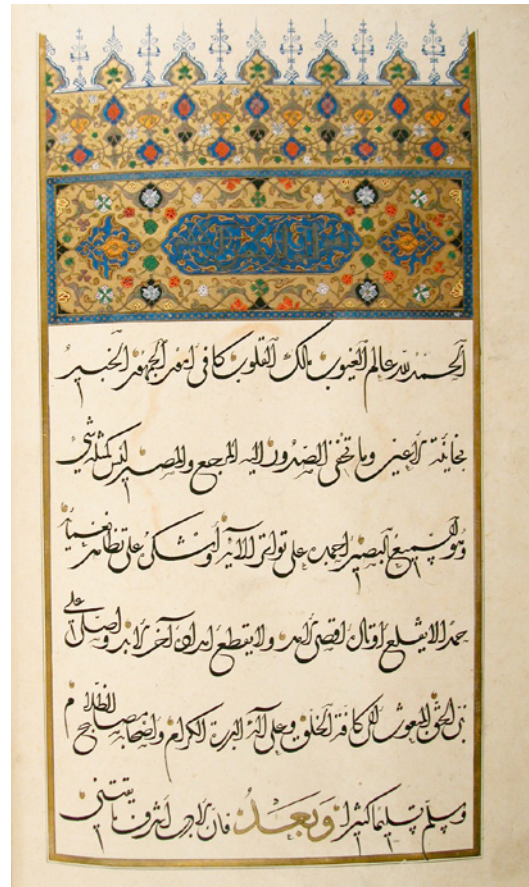 بسم الله الرحمن الرحيم
الحمد لله عالم الغيوب مالك القلوب كافى امور الجمهور الخبير
بخائنة الاعين وما تخفى الصدور اليه المرجع والمصير ليس كمثله شئ
وهو السميع البصير احمده على تواتر آلائه واشكره على تظاهر نعمائه
حمدا لا يقلع اقصى الامد ولا ينقطع آخر الابد واصلى على
نبى الحق المبعوث الى كافة الخلق وعلى آله البررة الكرام واصحابه مصابيح الظلام
وسلم تسليما كثيرا وبعد فان الادب اشرف ما يقتنى